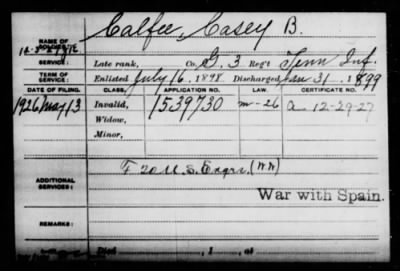 NAME OF SOLDIER: Calfee, Casey B.
SERVICE: Late rank, Co. G. 3 Reg't Tenn Inf.
TERM OF SERVICE: Enlisted July 16, 1898. Discharged Jan 31, 1899
DATE OF FILING. CLASS. APPLICATION NO. LAW. CERTIFICATE NO.
1926 May 13 Invalid, 1539730 m-26 a 12-29-27
Widow,
Minor,
ADDITIONAL SERVICES: F 20 U.S. Engrs. (WW)
War with Spain.
REMARKS:
Died , 1 , at